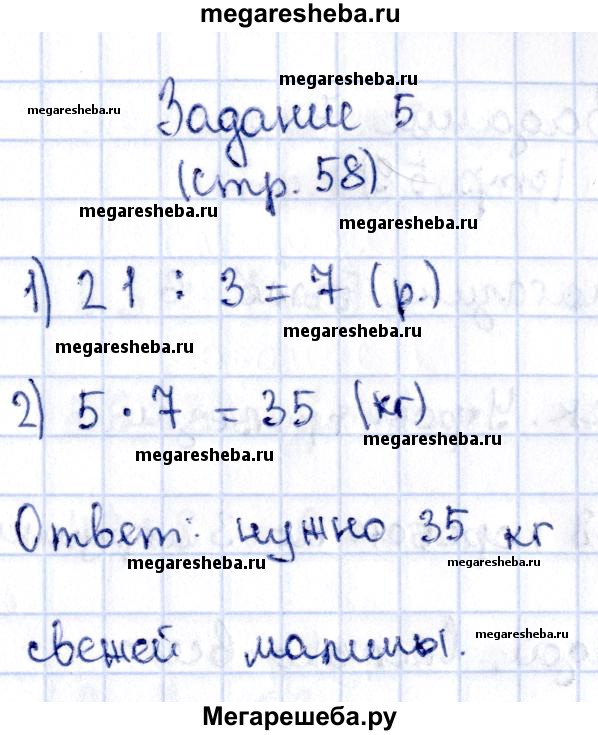 megaresheba.ru
megaresheba.ru
megaresheba.ru
Задание 5
(стр. 58)
megaresheba.ru
1) 21 : 3 = 7 (р.)
megaresheba.ru
megaresheba.ru
2) 5 · 7 = 35 (кг)
megaresheba.ru
megaresheba.ru
Ответ: нужно 35 кг
megaresheba.ru
megaresheba.ru
свежей малины.
megaresheba.ru
megaresheba.ru
Мегарешеба.ру